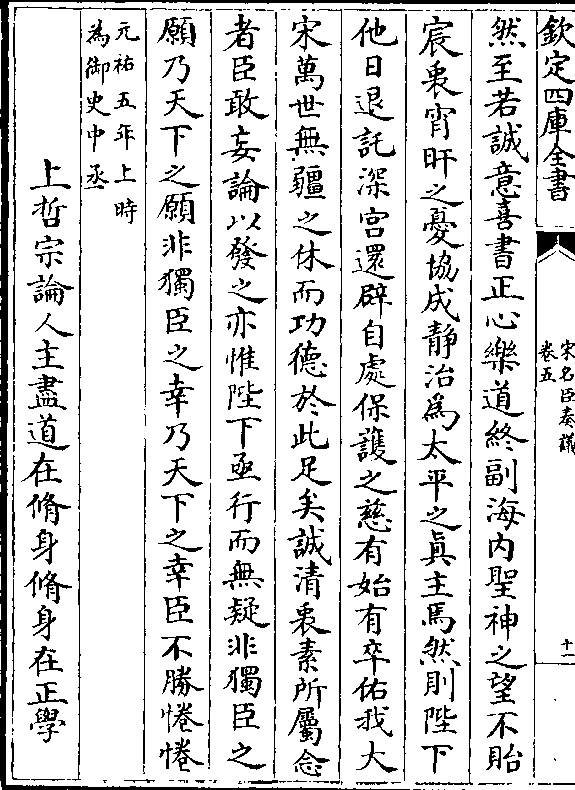 欽定四庫全書
宋名臣奏議
卷五
十一
然至若誠意喜書正心樂道終副海内聖神之望不貽
宸衷宵旰之憂協成靜治為太平之眞主焉然則陛下
他日退託深宫還辟自處保䕶之慈有始有卒佑我大
宋萬世無疆之休而功德於此足矣誠清衷素所屬念
者臣敢妄論以發之亦惟陛下亟行而無疑非獨臣之
願乃天下之願非獨臣之幸乃天下之幸臣不勝惓惓
元祐五年上時
為御史中丞
上哲宗論人主盡道在脩身脩身在正學